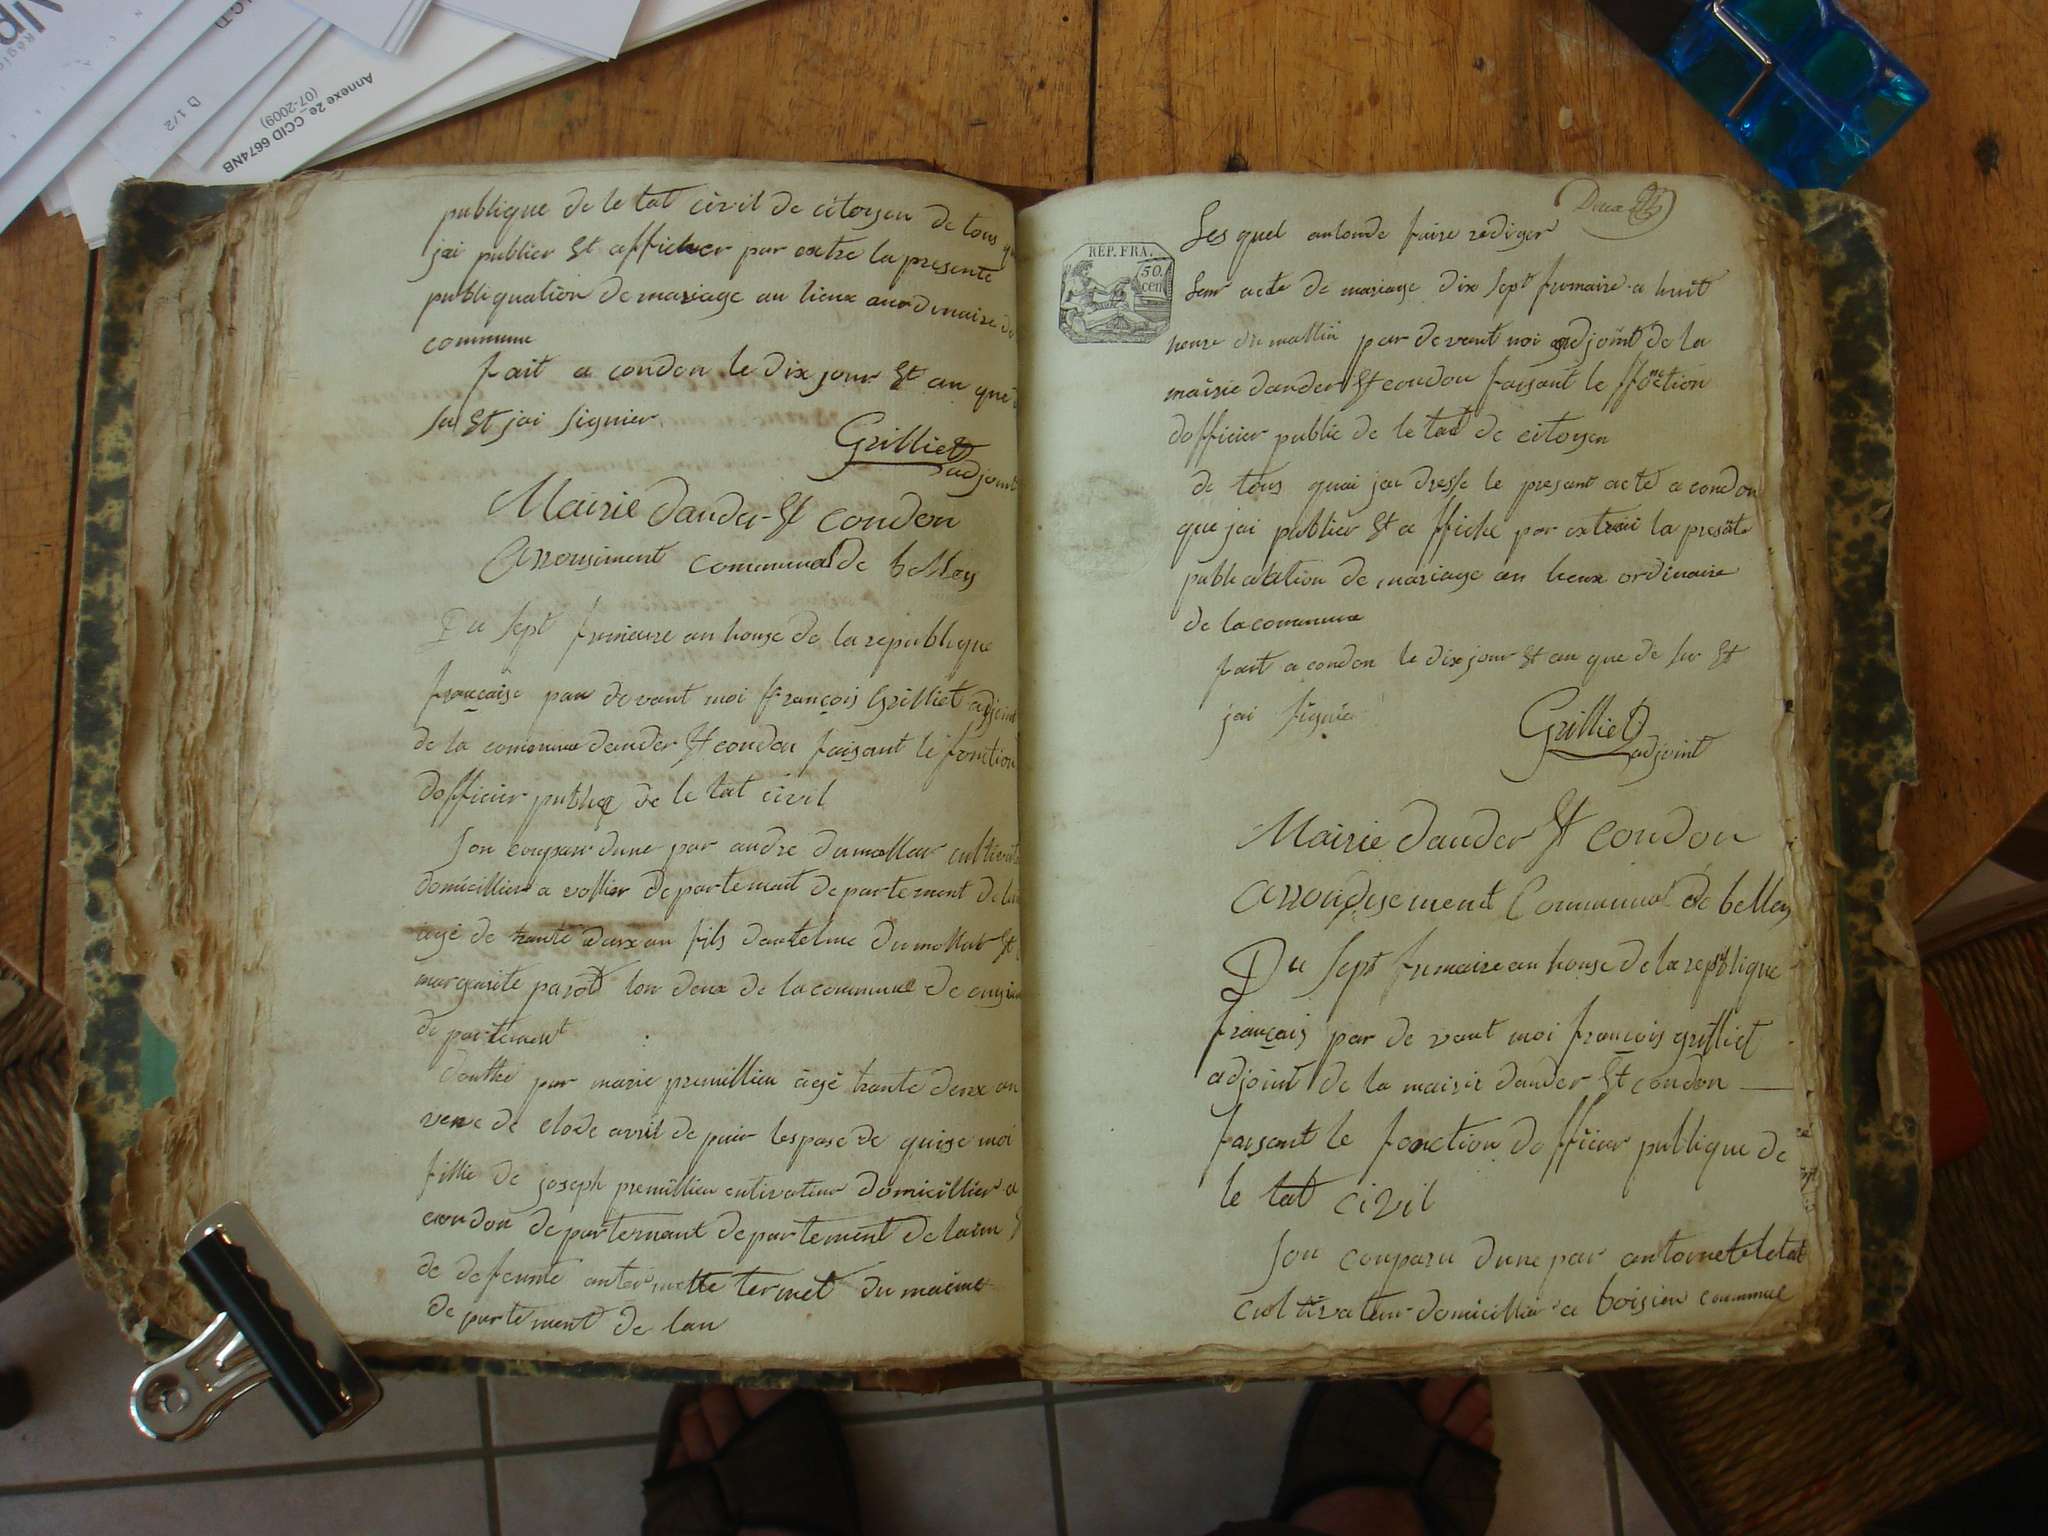 Annexe 2e_CCID 6674NB
(07-2009)
D 1/2
publique de le tat civil de citoyen de tous
jai publier St afficher par extre la presente
publiquation de mariage au lieux
commune
fait a condon le dix jour St an que
su St jai signier
Grilliet
adjoint
Mairie dander St condon
communal de belley
Du sept frimaire an honse de la republique
française par devant moi françois Grilliet adjoint
de la commune dander St condon faisant le fonction
dofficier publiq de le tat civil
Son dune par andre dumollar
domicillier a vollier departement departement de
agé de trante deux an fils dantelme dumollar St
marguerite parot ton deux de la commune de
de partement
doutre par marie premillieu agé trante deux an
veve de clode avril de puis lespase de quise moi
fillie de joseph premillieu cutivateur domicillier a
condon departemant departement de lain
de defeunte anter mette termet du maime
de partement de lan
Deux
REP. FRA.
50.
cen
Les quel faire rediger
leur acte de mariage dix sept frimaire a huit
heure du mattin par devant moi adjoint de la
mairie dander St condon faisant le ffonction
dofficier public de le tat de citoyen
de tous quoi jai dresse le present acte a condon
que jai publier St a ffiche par extrai la
publication de mariage au lieux ordinaire
de la commune
fait a condon le dix jour St an que de su St
jai signié
Grilliet
adjoint
Mairie dander St condon
arrondisement Communal de belley
Du sept frimaire an honse de la republique
français par de vant moi françois grilliet
adjoint de la mairie dander St condon
faisant le fonction dofficier publique de
le tat civil
Son conparu dune par
cultivateur domicillier a boisieu commune